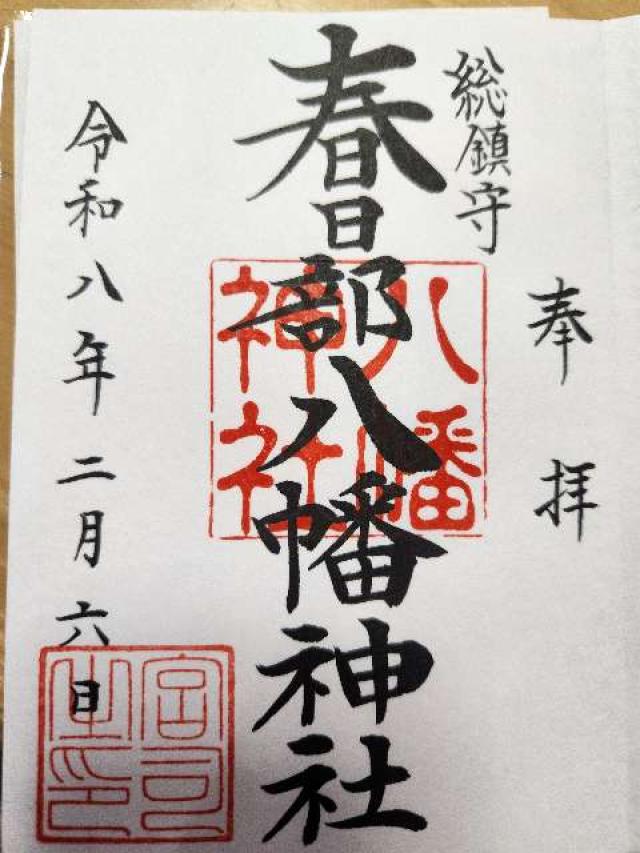 奉拝
総鎮守
春日部八幡神社
八幡神社
令和八年二月六日
宮司之印